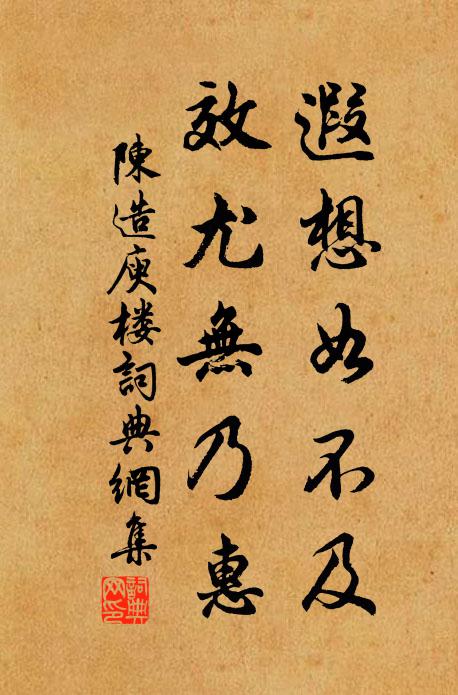 遐想如不及
效尤無乃惠
陳造庾楼詞典網集
詞典
网印